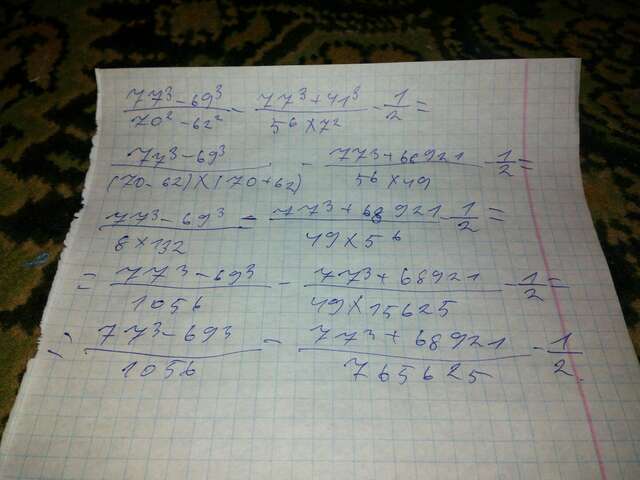 77³-69³/70²-62² - 77³+41³/5⁶×7² - 1/2 =
77³-69³/(70-62)×(70+62) - 77³+68921/5⁶×49 - 1/2 =
77³-69³/8×132 - 77³+68921/49×5⁶ - 1/2 =
= 77³-69³/1056 - 77³+68921/49×15625 - 1/2 =
= 77³-693/1056 - 77³+68921/765625 - 1/2